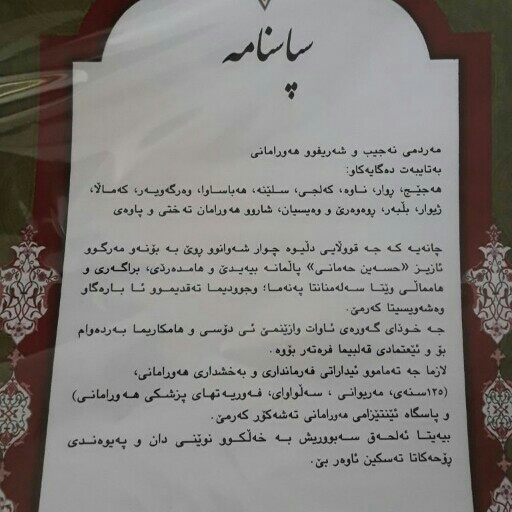 سپاسنامه
مەردمی نەجیب و شەریفوو هەورامانی
بەتایبەت دەگایەکاو:
هەجێج، ڕوار، ناوە، کەلجی، سلێنە، هەباساوا، وەرگەویەر، کەماڵا،
ژیوار، بڵبەر، ڕوەوەرێ و وەیسیان، شاروو هەورامان تەختی و پاوەی
چانەیە کە جە قووڵایی دڵیوە چوار شەوانوو ڕوێ بە بۆنەو مەرگوو
ئازیز «حسەین حەمانی» پاڵمانە بیەیدێ و هامدەردی، براگەری و
هامماڵی وێتا سەلەمنانتا پەنەما؛ وجوودیما تەقدیموو ئا بارەگاو
وەشەویسیتا کەرمێ.
جە خودای گەورەی ئاوات وازێنمێ ئی دۆسی و هامکاریما بەردەوام
بۆ و ئێعتمادی قەلبیما فرەتەر بۆوە.
لازما جە تەماموو ئیداراتی فەرمانداری و بەخشداری هەورامانی،
(١٢٥سنەی، مەریوانی، سەڵواوای، فەوریەتهای پزشکی هەورامانی)
و پاسگاه ئێنتێزامی هەورامانی تەشەکۆر کەرمێ.
بیەیتا ئەلحەق سەبووریش بە خەڵکوو نوێنی دان و پەیوەندی
ڕۆحەکاتا تەسکین ئاوەر بێ.